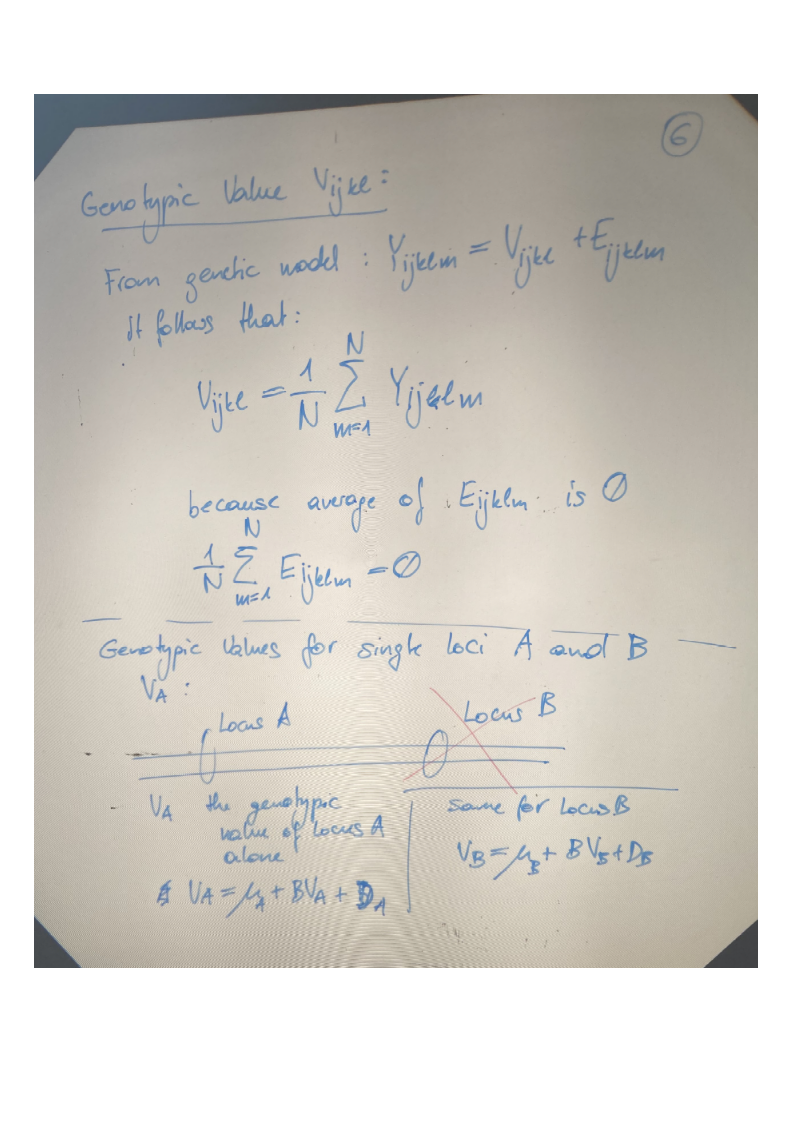 6
Genotypic Value Vijkl:
From genetic model: Yijklm = Vijkl + Eijklm
it follows that:
Vijkl = 1/N ∑_{m=1}^{N} Yijklm
because average of Eijklm is 0
1/N ∑_{m=1}^{N} Eijklm = 0
Genotypic Values for single loci A and B
VA:
Locus A
Locus B
VA the genotypic
value of locus A
alone
VA = μA + BVA + DA
same for locus B
VB = μB + BVB + DB